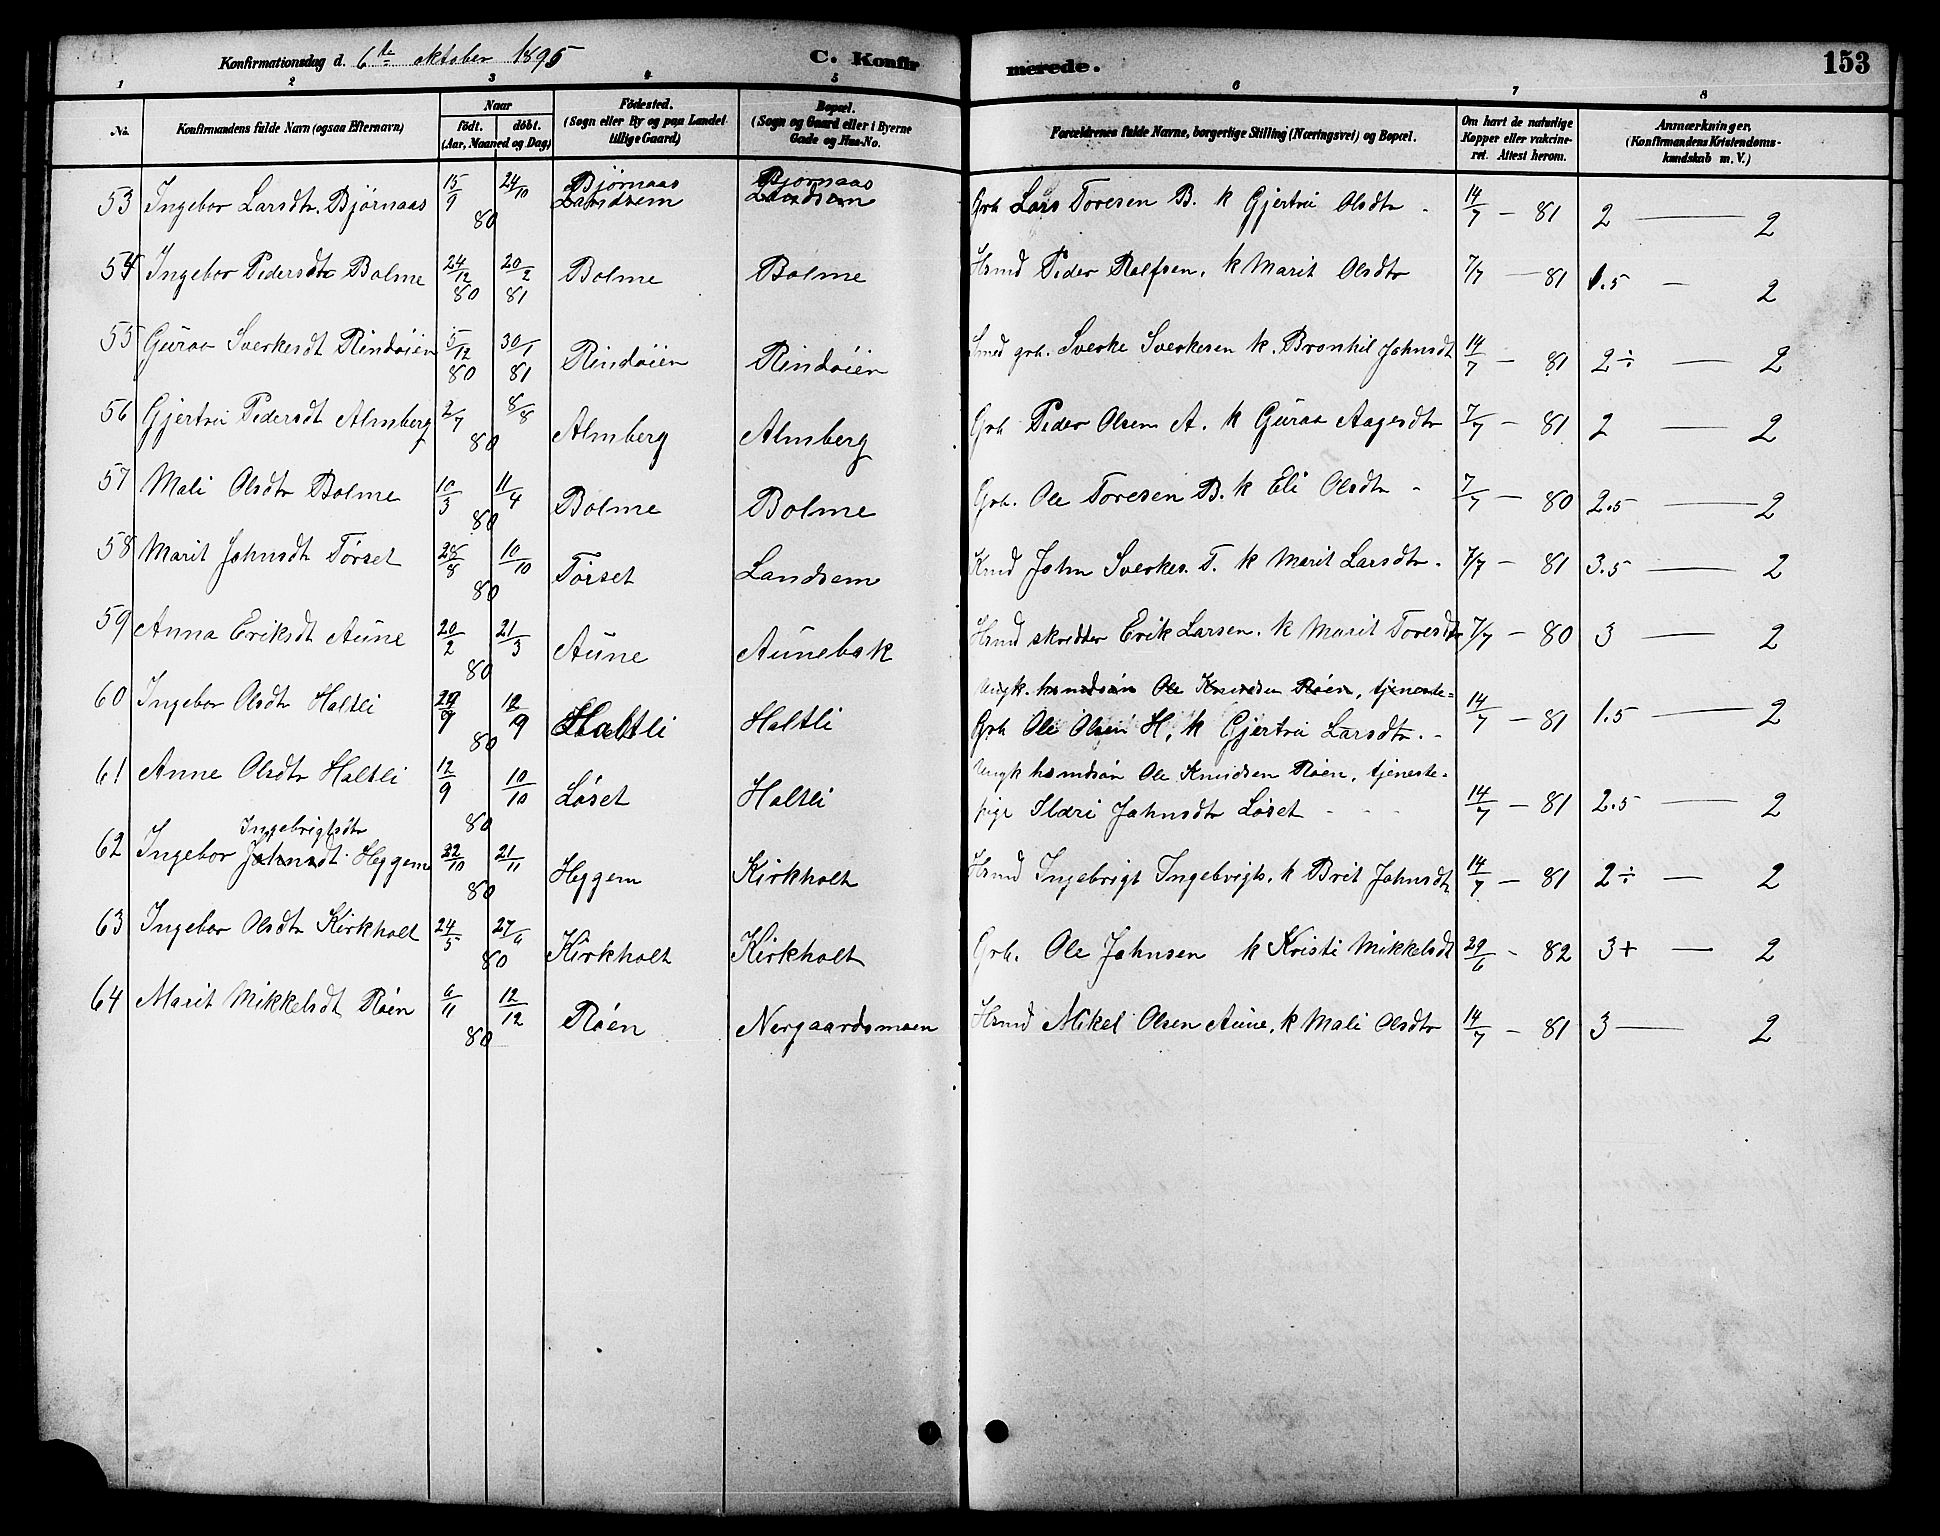 Konfirmationsdag d. 6te oktober 1895
C. Konfirmerede.
153
1 2 3 4 5 6 7 8
No.
Konfirmandens fulde Navn (ogsaa Efternavn)
Naar
födt. döbt.
(Aar, Maaned og Dag)
Födested.
(Sogn eller By og paa Landet
tillige Gaard)
Bopæl.
(Sogn og Gaard eller i Byerne
Gade og Hus-No.
Forældrenes fulde Navne, borgerlige Stilling (Næringsvei) og Bopæl.
Om havt de naturlige
Kopper eller vakcine-
ret. Attest herom.
Anmærkninger,
(Konfirmandens Kristendoms-
kundskab m. V.)
53 Ingebor Larsdtr. Bjørnaas 15/9 24/10 80 Bjørnaas Landsem Bjørnaas Landsem Grb Lars Toresen B. k Gjertru Olsdtr - 14/7 - 81 2 — 2
54 Ingebor Pedersdtr Bolme 24/12 80 20/2 81 Bolme Bolme Hsmd Peder Rolfsen. k Marit Olsdtr 7/7 - 81 1.5 — 2
55 Guroo Sverkesdt Rindøien 5/12 80 30/1 81 Rindøien Rindøien Smed grb. Sverke Sverkesen k. Bronhil Johnsdt 14/7 - 81 2÷ — 2
56 Gjertru Pedersdt Almberg 2/7 8/8 80 Almberg Almberg Grb Peder Olsen A. k Guroo Aagesdtr 7/7 - 81 2 — 2
57 Mali Olsdtr Bolme 10/3 11/4 80 Bolme Bolme Grb. Ole Toresen B. k Eli Olsdtr - 7/7 - 80 2.5 — 2
58 Marit Johnsdt Tørset 28/8 10/10 80 Tørset Landsem Kmd John Sverkes. T. k Marit Larsdtr. 7/7 - 81 3.5 — 2
59 Anna Eriksdt Aune 20/2 21/3 80 Aune Aunebak Hsmd skrædder Erik Larsen. k Marit Toresdtr 7/7 - 80 3 — 2
60 Ingebor Olsdtr Haltli 80 Haltli Haltli Ungk. hsmdsøn Ole Knudsen Røen, tjeneste-
Grb Ole Olsen H, k Gjertru Larsdtr. - 14/7 - 81 1.5 — 2
61 Anne Olsdtr Haltli 12/9 10/10 80 Løset Haltli Ungk hsmdsøn Ole Knudsen Røen, tjeneste-
pige Ildri Johnsdtr Løset - - - 14/7 - 81 2.5 — 2
62 Ingebor Johnsdt Ingebrigtsdtr Heggem 22/10 21/11 80 Heggem Kirkholt Hsmd Ingebrigt Ingebrigts. k Brit Johnsdt 14/7 - 81 2÷ — 2
63 Ingebor Olsdtr Kirkholt 24/5 80 Kirkholt Kirkholt Grb. Ole Johnsen k Kristi Mikkelsdt 29/6 - 82 3+ — 2
64 Marit Mikkelsdt Røen 6/11 12/12 80 Røen Nergaardsmoen Hsmd Mikel Olsen Aune, k Mali Olsdtr 14/7 - 81 3 — 2